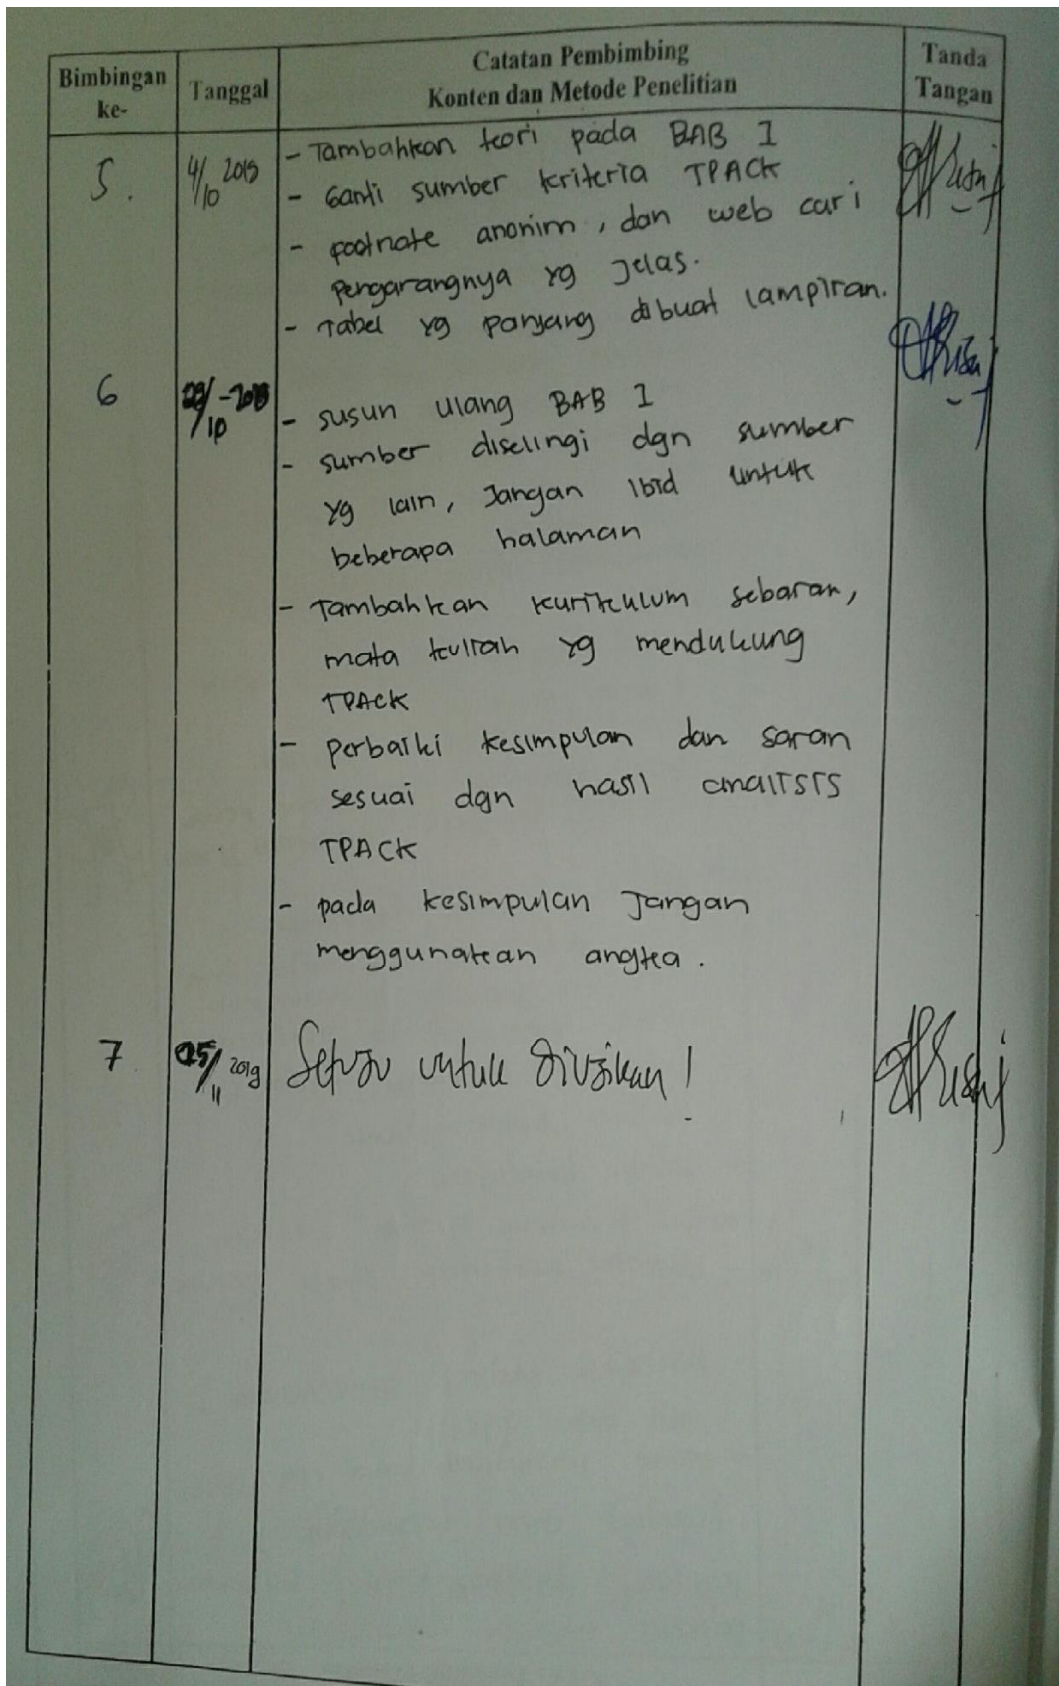 Bimbingan ke-
Tanggal
Catatan Pembimbing
Konten dan Metode Penelitian
Tanda Tangan
5.
4/10 2019
- Tambahkan teori pada BAB I
- Ganti sumber kriteria TPACK
- footnote anonim, dan web cari
pengarangnya yg jelas.
- Tabel yg panjang dibuat lampiran.
6
/10
- susun ulang BAB I
- sumber diselingi dgn sumber
yg lain, Jangan Ibid untuk
beberapa halaman
- Tambahkan kurikulum sebaran,
mata kuliah yg mendukung
TPACK
- perbaiki kesimpulan dan saran
sesuai dgn hasil analisis
TPACK
- pada kesimpulan Jangan
menggunakan angka.
7
/11 2019
Setuju untuk diujikan!